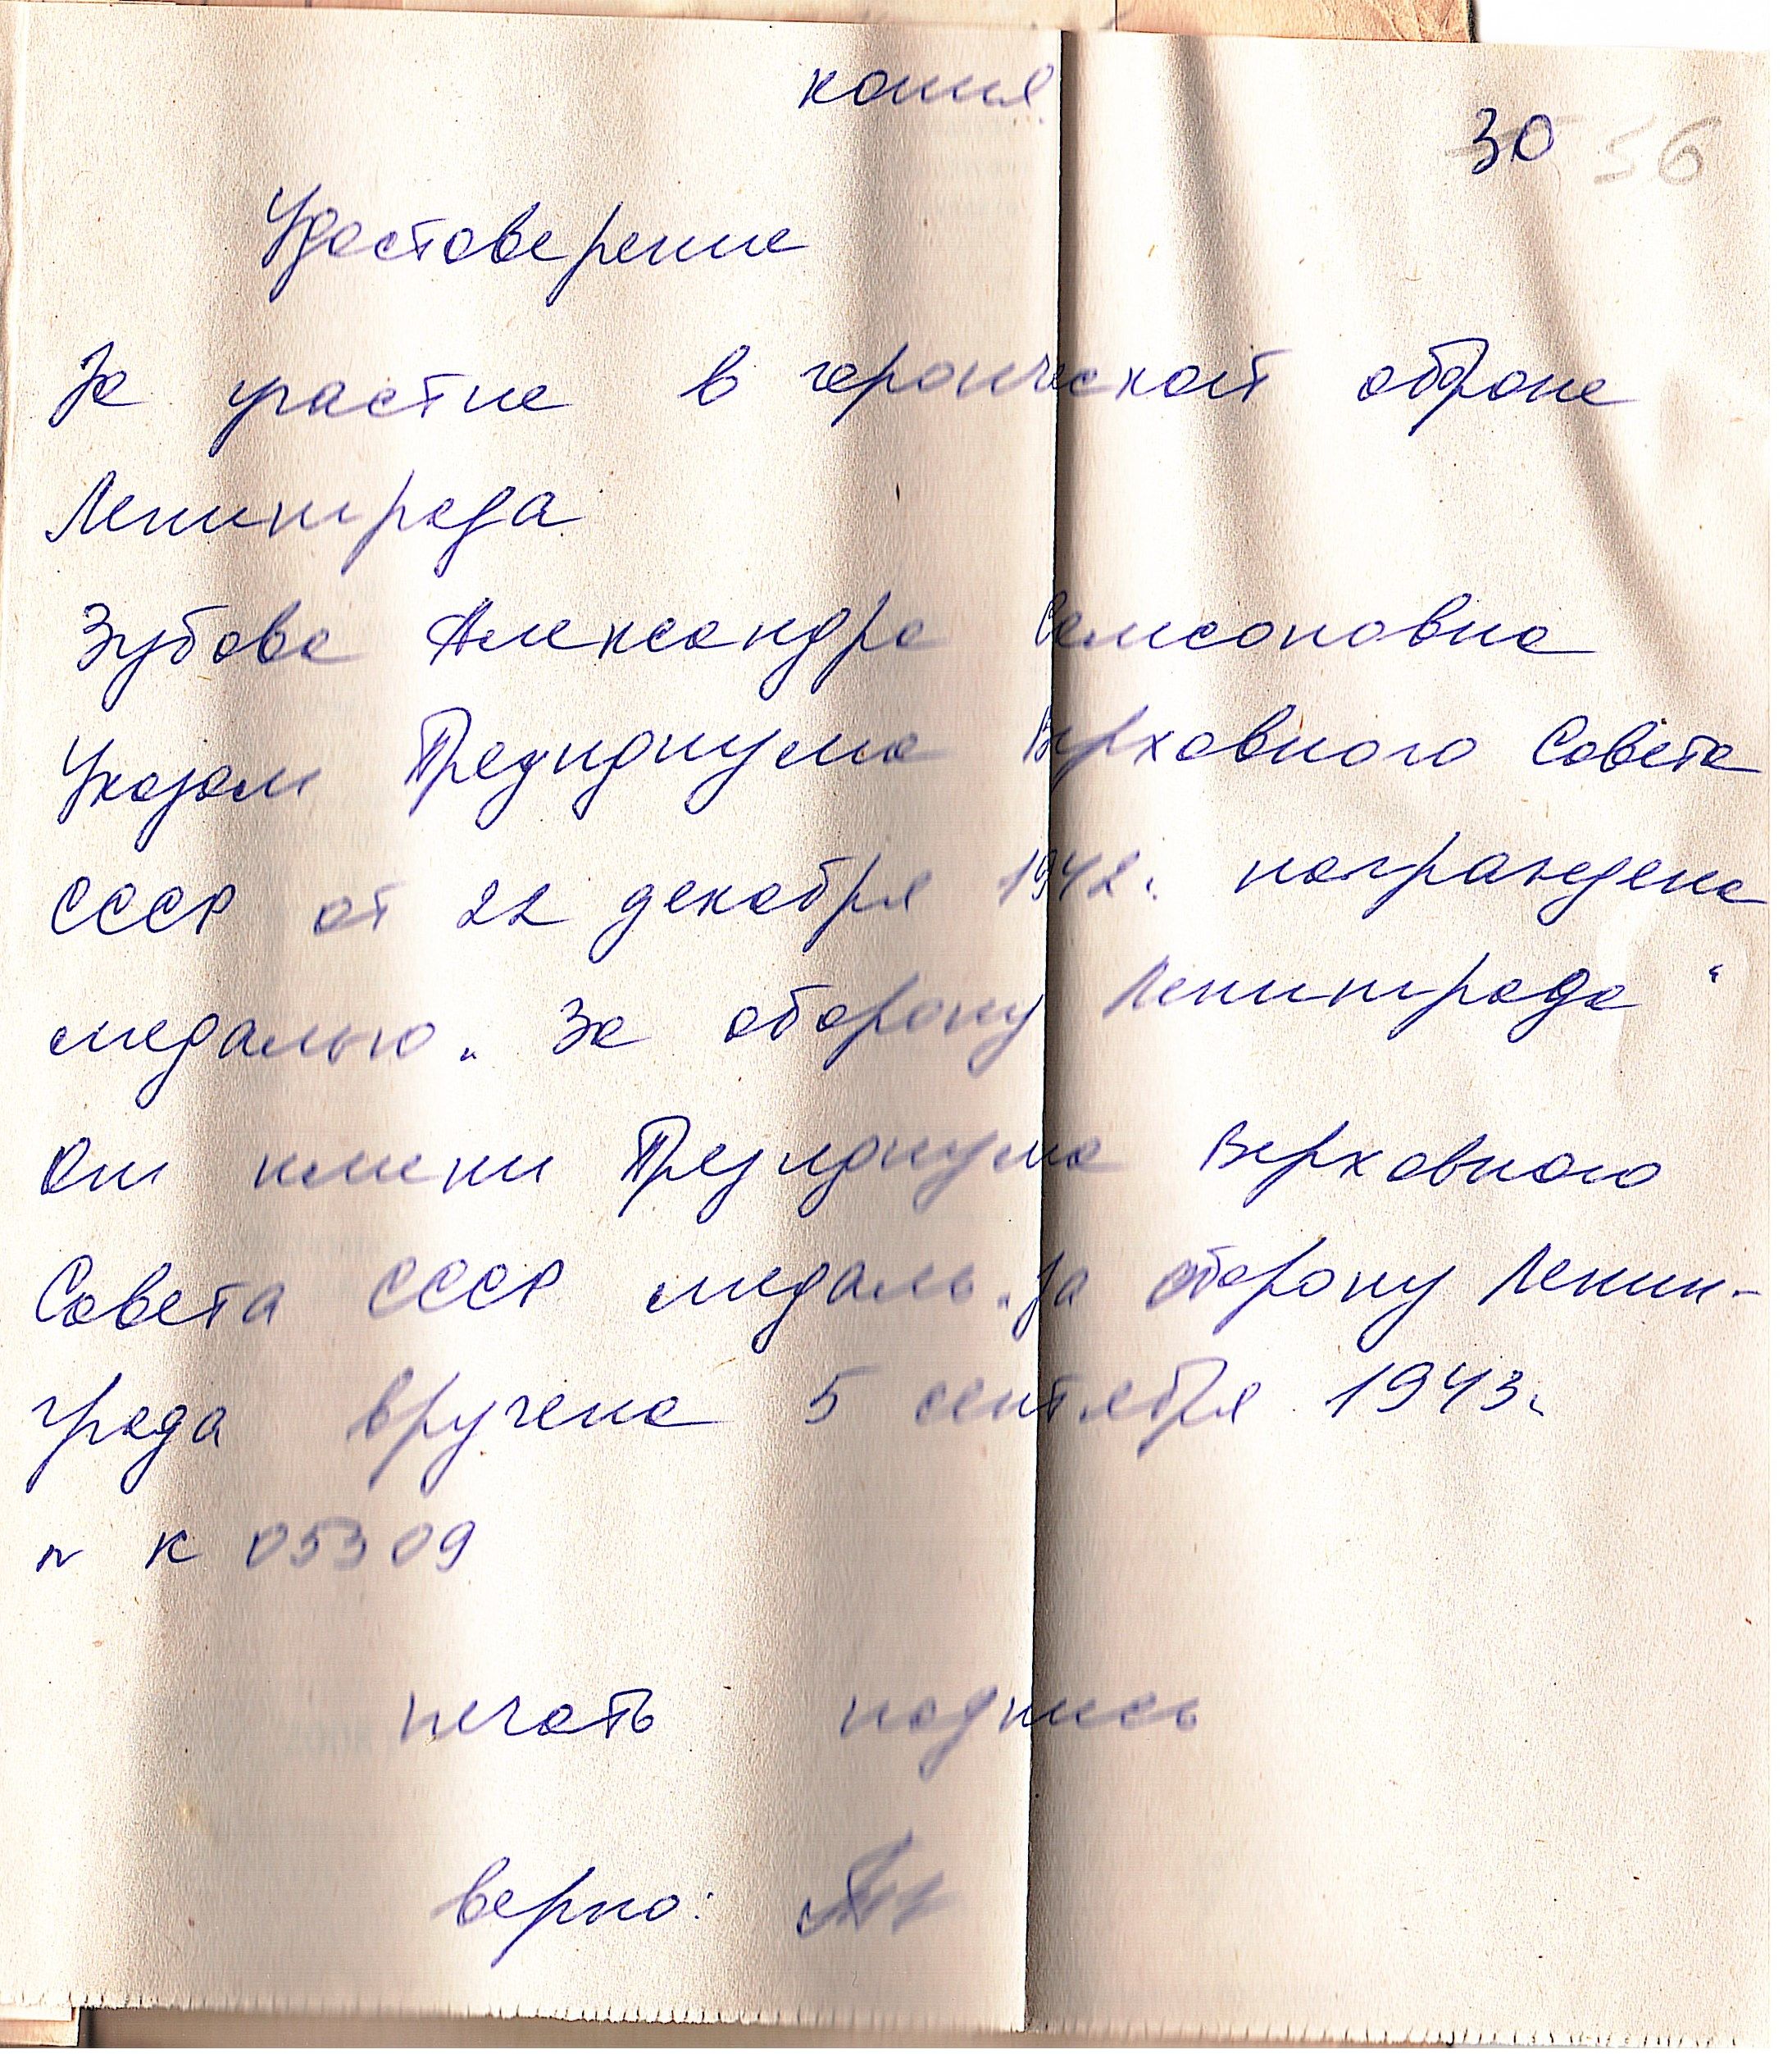 копия
30 56
Удостоверение
За участие в героической обороне
Ленинграда
Зубова Александра Самсоновна
Указом Президиума Верховного Совета
СССР от 22 декабря 1942г. награждена
медалью „За оборону Ленинграда“
От имени Президиума Верховного
Совета СССР медаль „За оборону Ленин-
града вручена 5 сентября 1943г.
N К 05309
печать подпись
верно: